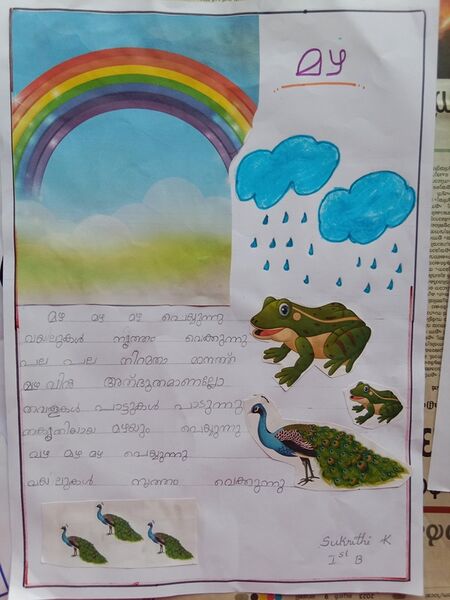 മഴ
മഴ മഴ മഴ പെയ്യുന്നു
മയിലുകൾ നൃത്തം വെക്കുന്നു
പല പല നിറമതാ മാനത്ത്
മഴവിൽ അത്ഭുതമാണല്ലോ
തവളകൾ പാട്ടുകൾ പാടുന്നു
മഴയും പെയ്യുന്നു
മഴ മഴ മഴ പെയ്യുന്നു
മയിലുകൾ നൃത്തം വെക്കുന്നു
Sukrithi K
Ist B